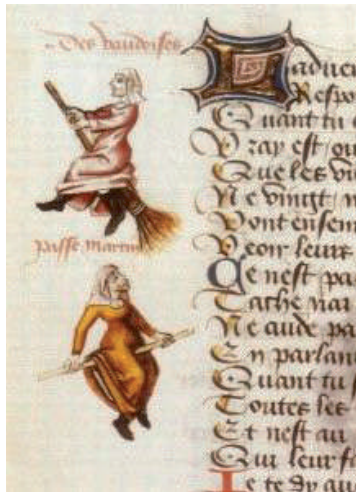 Des vaudoises
passe martin
Laduer
Respo
Quant tu
Vray est ou
Que les vi
Ne vingt m
Vont ensem
Veoir leurs
Ce nest pa
Cathe nai
Ne cuide pa
En parlan
Quant tu
Toutes les
Et nest au
Qui leur f
Je te dy que